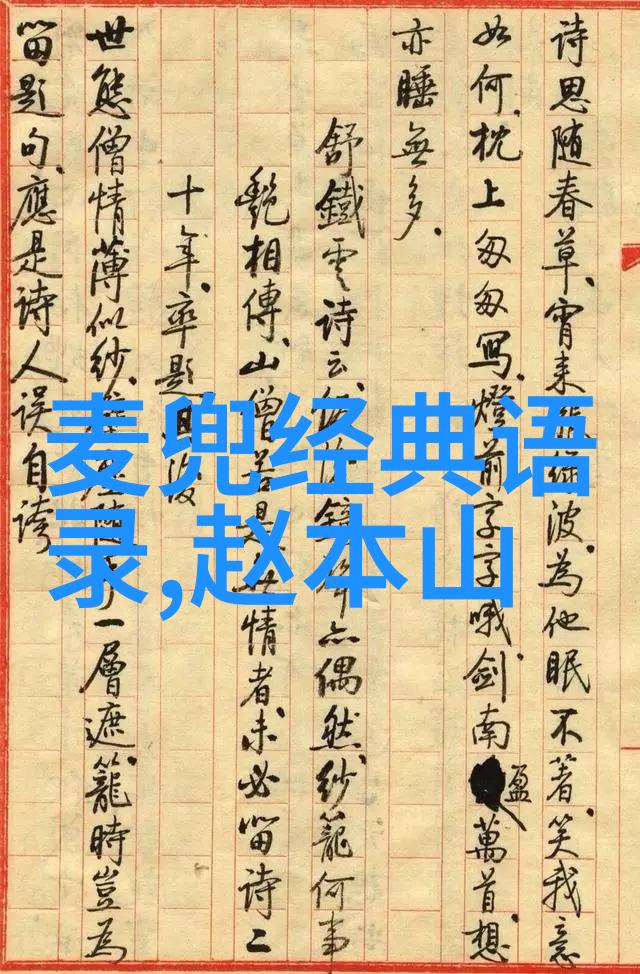 诗思随春草、宵来
波、为他眠不著、笑我意
如何、枕上匆匆写、燈前字字哦、剑南盈萬首、想
亦睡無多、
舒鐵雲诗云、
亦偶然、纱籠何事
艷相傳、山僧若是
情者、未必留诗二
十年、率題
世態僧情薄似纱、
一層遮、籠時豈為
留題句、應是诗人误自誇
麦兜经典语
录,赵本山